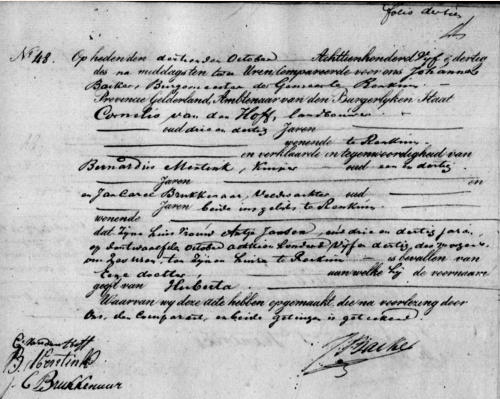 folio dertien
No. 48. Op heden den dertienden October Achttienhonderd Vijf & dertig
des na middags ten twee Uren Compareerde voor ons Johannes
Backer, Burgemeester der Gemeente Renkum
Provincie Gelderland, Ambtenaar van den Burgerlyken Staat
Cornelis van den Hoff, landbouwer
oud drie en dertig Jaren
wonende te Renkum
en verklaarde in tegenwoordigheid van
Bernardus Mentink, Kuiper oud een en dertig
Jaren en
en Jan Carel Brukkenaar, Veldwachter oud
Jaren beide insgelyks te Renkum
wonende
dat Zyne huisvrouw Antje Jansen, oud drie en dertig jaren,
op den twaalfden October achttien honderd Vijf en dertig, des morgens
om Zes uren, ten Zynen huize te Renkum is bevallen van
Eene dochter, aan welke hij de voornaam
geeft van Huberta
Waarvan wy deze akte hebben opgemaakt, die na voorlezing door
Ons, den Comparant, en beide Getuigen is geteekend
C van den Hoff
B. Mentink
J C Brukkenaar
J Backer